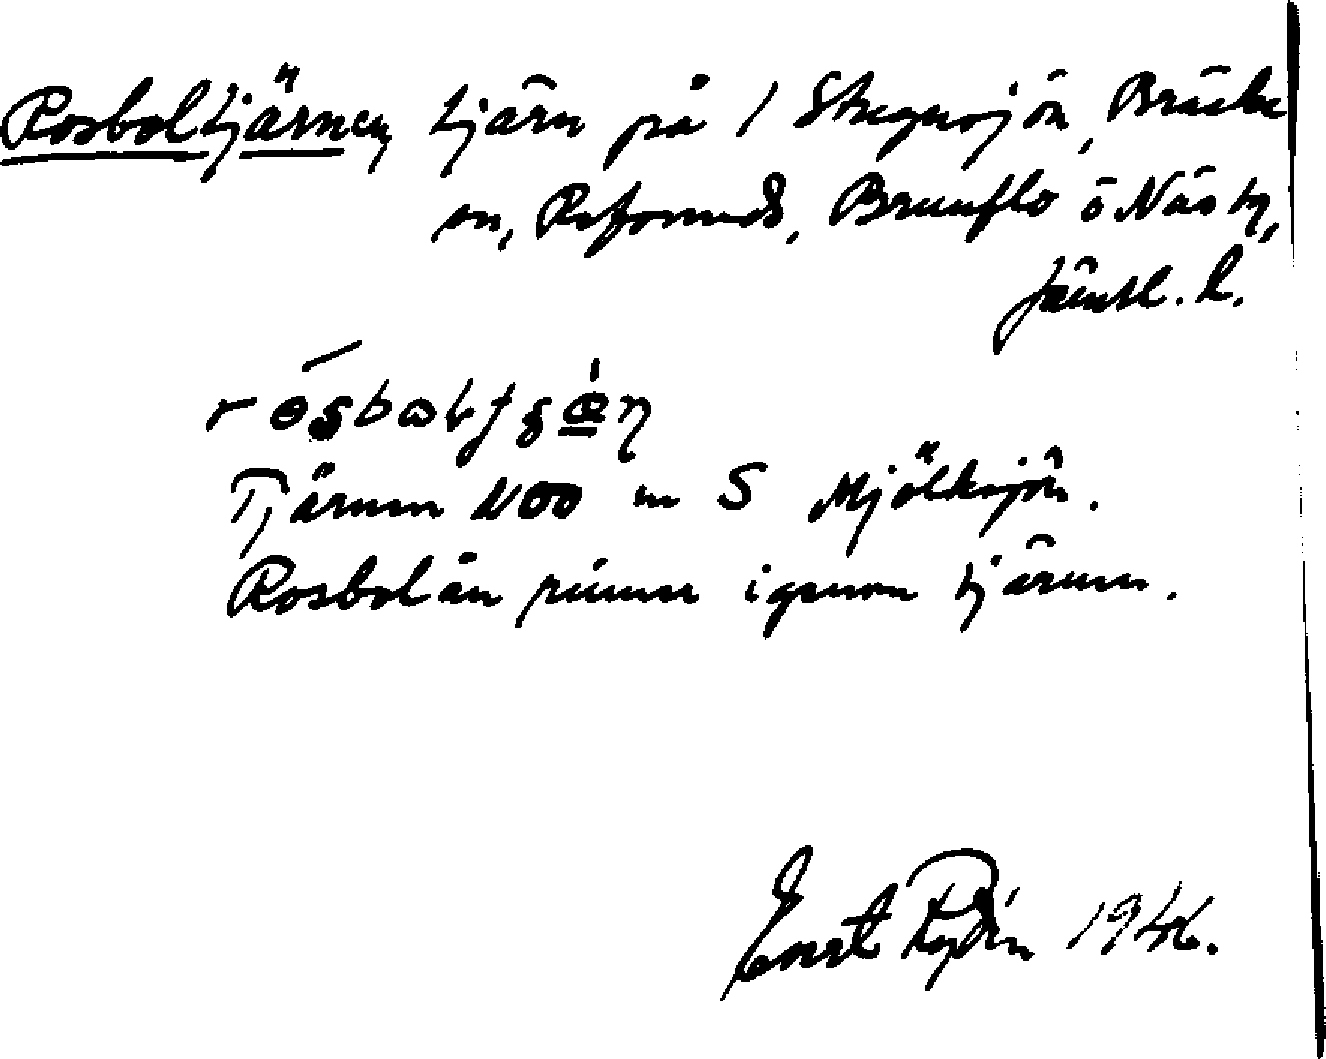 Rosboltjärnen, tjärn på 1 Stugusjön, Bräcke
sn, Refsunds, Brunflo o Näs tg,
Jämtl. l.
Tjärnen 400 m S Mjölksjön.
Rosbolån rinner igenom tjärnen.
Ernst Rydén 1946.